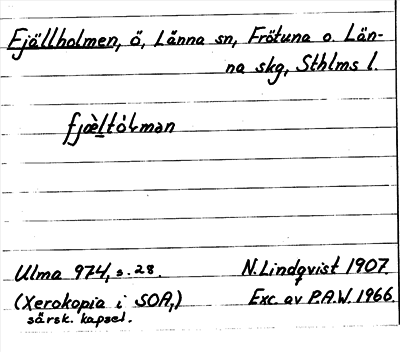 Fjällholmen, ö, Länna sn, Frötuna o. Län-
na skg, Sthlms l.
fjæ̀ltólman
Ulma 974, s. 28. N. Lindqvist 1907.
(Xerokopia i SOA,) Exc. av P.A.W. 1966.
särsk. kapsel.